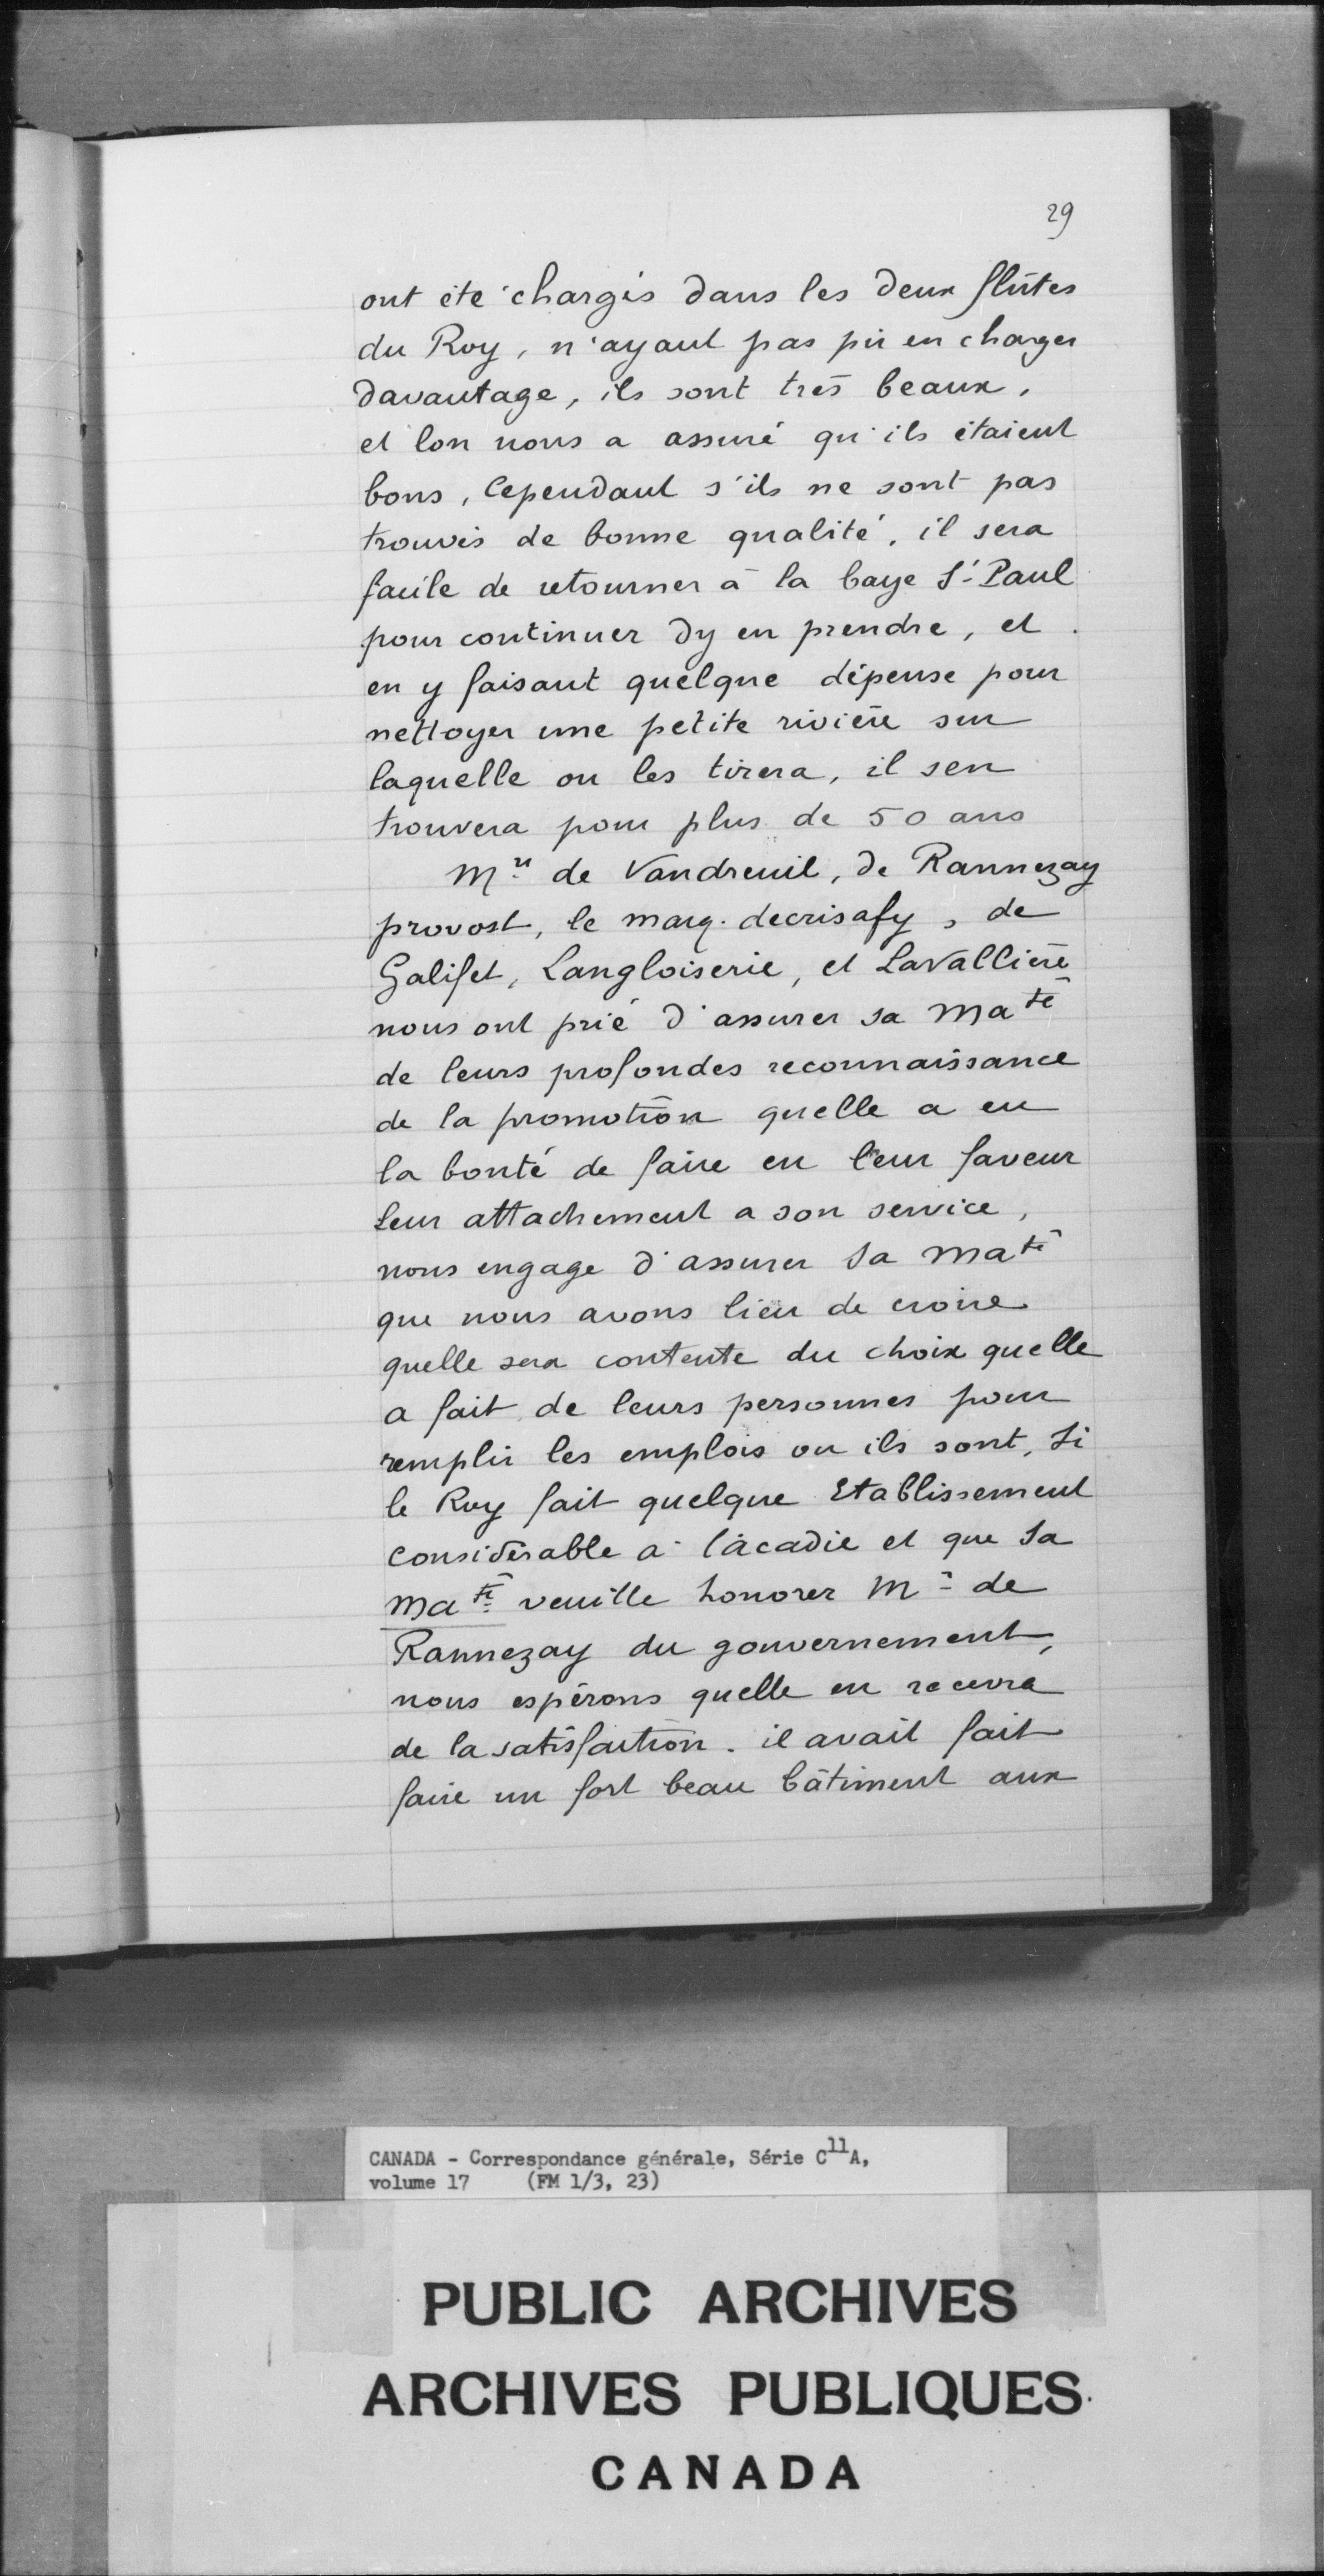 29
ont été chargés dans les deux flûtes
du Roy, n'ayant pas pû en charger
davantage, ils sont très beaux,
et lon nous a assuré qu'ils étaient
bons, Cependant s'ils ne sont pas
trouvés de bonne qualité, il sera
facile de retourner à la baye St Paul
pour continuer dy en prendre, et
en y faisant quelque dépense pour
nettoyer une petite rivière sur
laquelle on les tirera, il sen
trouvera pour plus de 50 ans
Mrs de Vaudreuil, de Rannezay
provost, le marq. decrisafy, de
Galifet, Langloiserie, et Lavallière
nous ont prié d'assurer sa Maté
de leurs profondes reconnaissance
de la promotion quelle a eu
la bonté de faire en leur faveur
leur attachement a son service,
nous engage d'assurer Sa Maté
que nous avons lieu de croire
quelle sera contente du choix quelle
a fait de leurs personnes pour
remplir les emplois ou ils sont, Si
le Roy fait quelque Etablissement
considérable a l'acadie et que Sa
Maté veuille honorer Mr de
Rannezay du gouvernement,
nous espérons quelle en recevra
de la satisfaction. il avait fait
faire un fort beau bâtiment aux
CANADA - Correspondance générale, Série C11A,
volume 17 (FM 1/3, 23)
PUBLIC ARCHIVES
ARCHIVES PUBLIQUES
CANADA